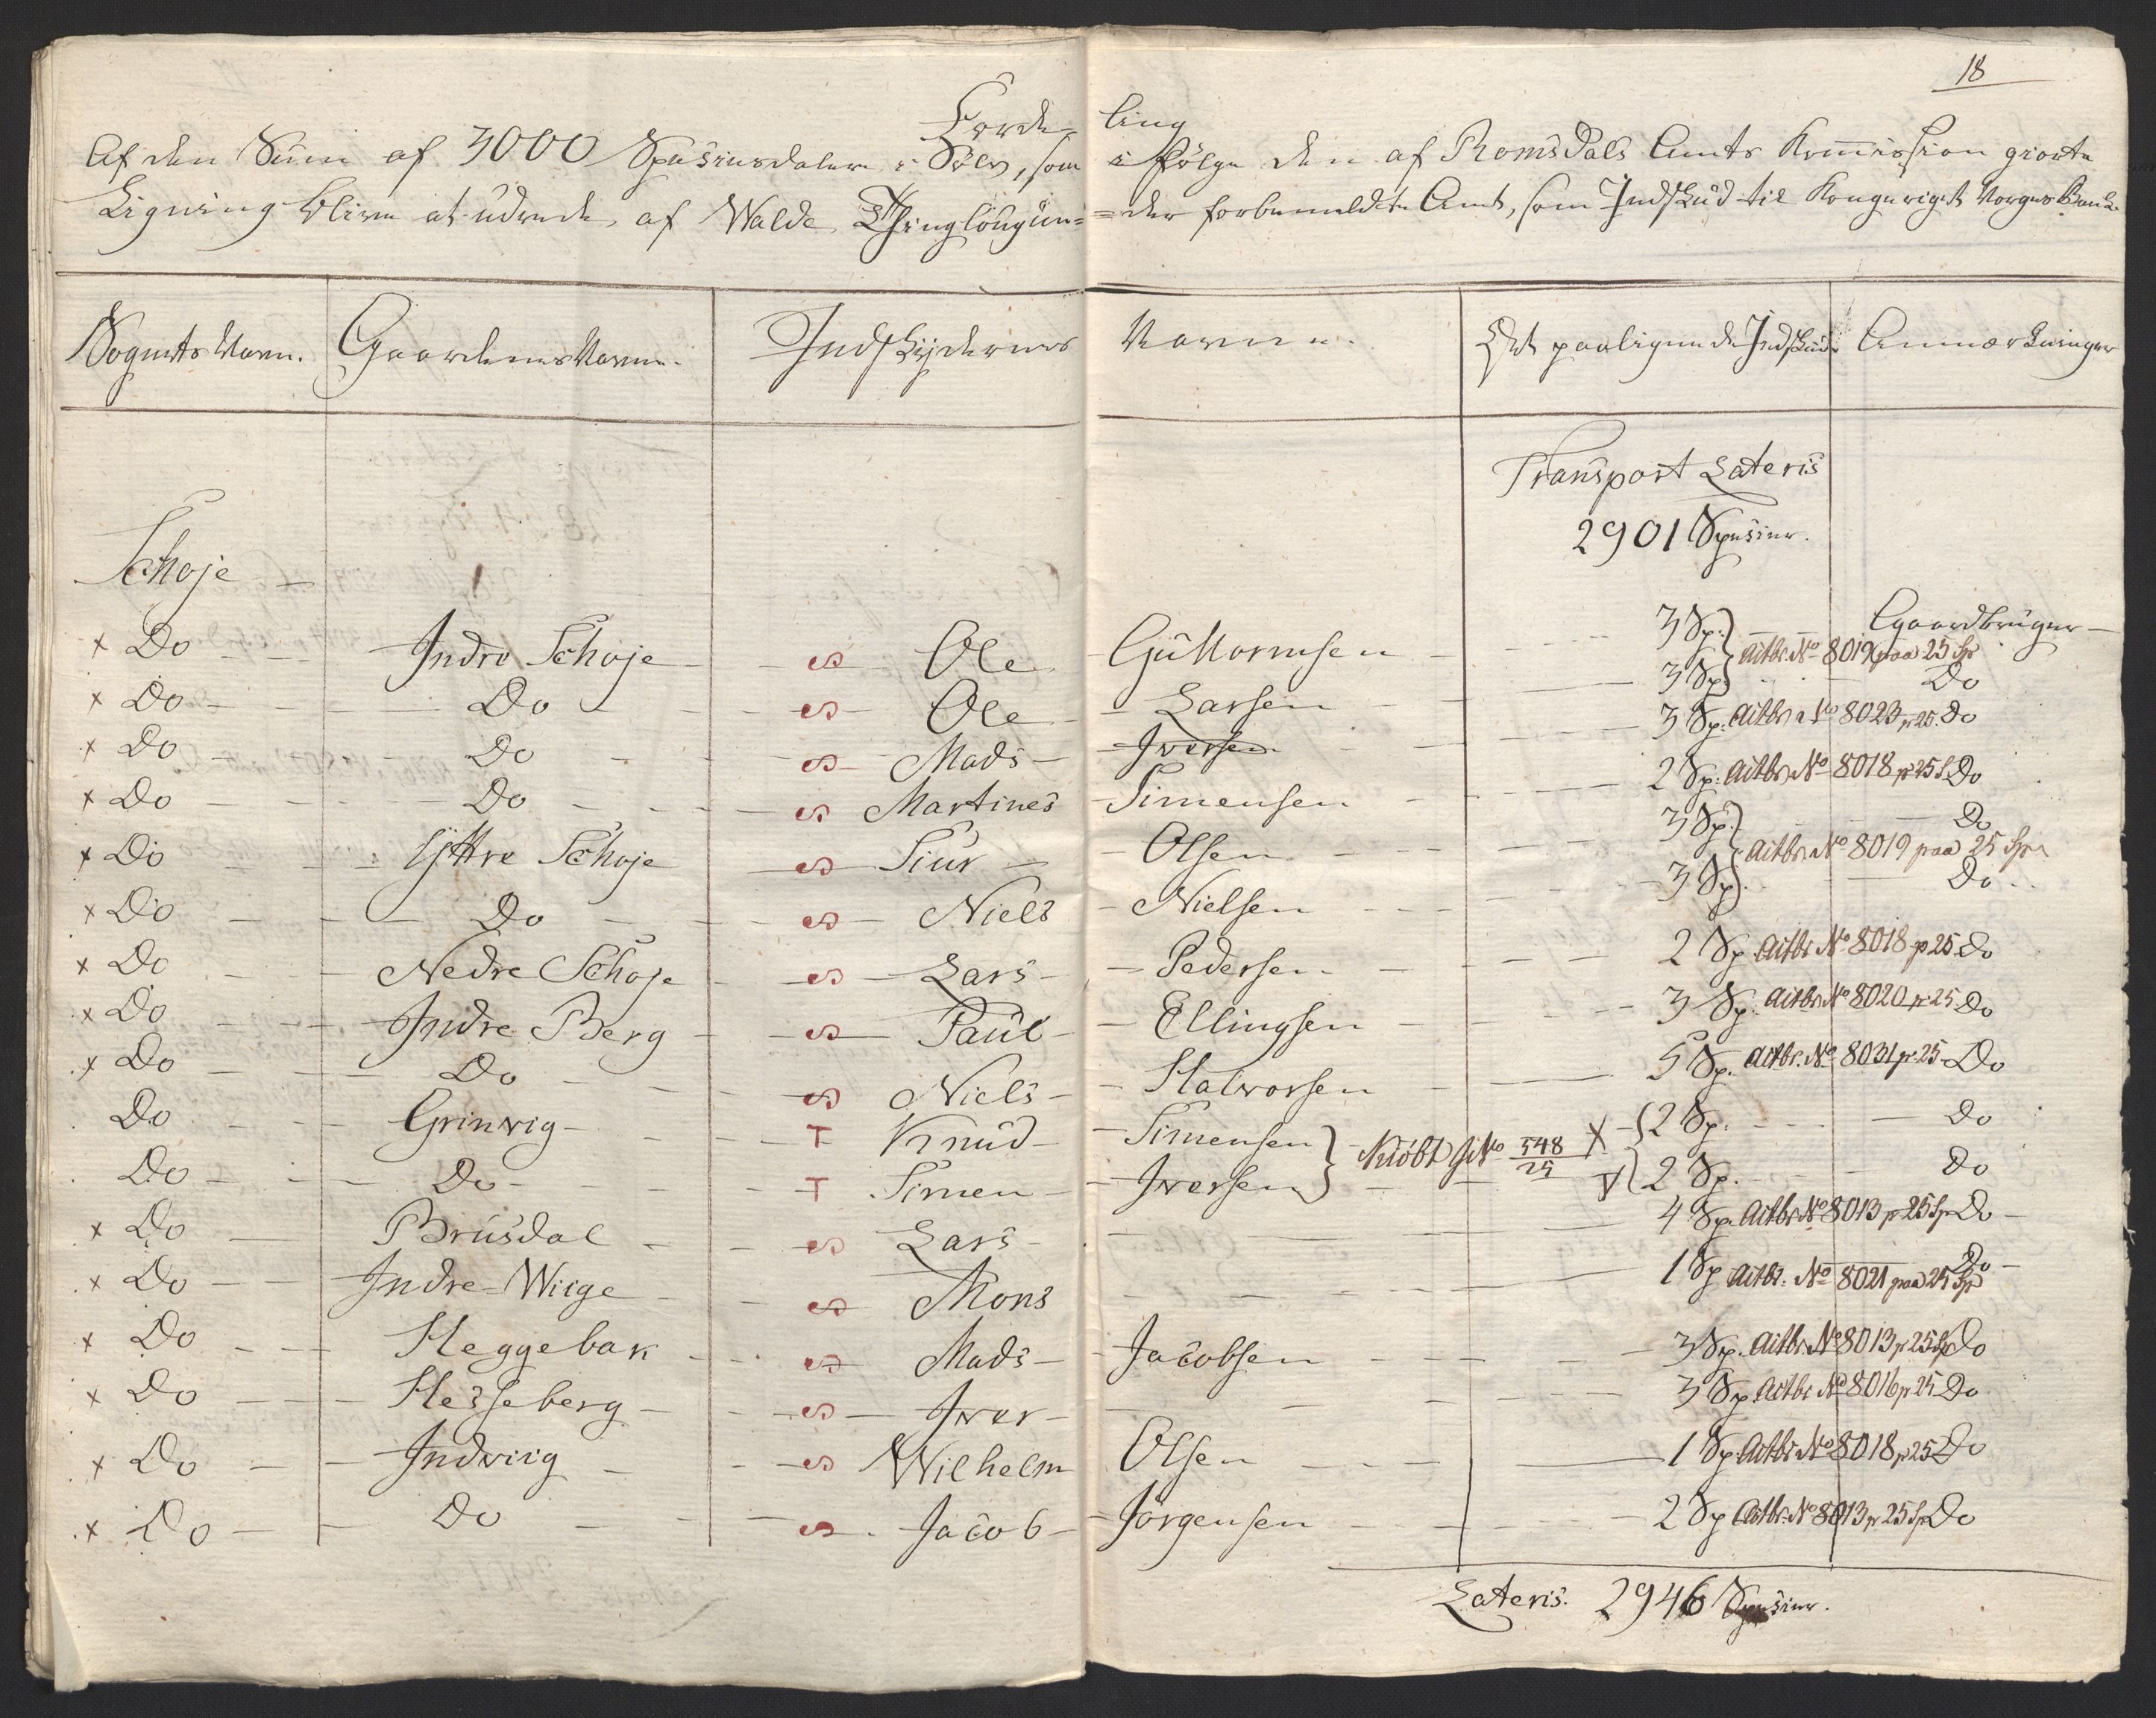 18
Forde- ling
Af den Sum af 3000 Speciesdaler i Sølv, som i Følge den af Romsdals Amts Kommission giorte
Ligning bliver at udrede af Walde Thinglaug un= =der forbemeldte Amt, som Indskud til Kongeriget Norges Bank
Sognets Navn. Gaardenes Navne. Indskydernes Navne. Det paalignede Indskud Anmærkninger
Transport Lateris
2901 Species.
Schoje
x Do Indre Schoje S Ole Guttormsen 3 Sp: Gaardbruger
Aitbr. No 8019 paa 25 Sp
x Do Do S Ole Larsen 3 Sp: Do
x Do Do S Mads Iversen 3 Sp: Aitbr No 8023 p 25. Do
x Do Do S Martines Simensen 2 Sp: Aitbr No 8018 p 25 S Do
x Do Yttre Schoje S Siur Olsen 3 Sp: Do
Aitbr. No 8019 paa 25 Sp
x Do Do S Niels Nielsen 3 Sp Do
x Do Nedre Schoje S Lars Pedersen 2 Sp. Aitbr No 8018 p 25 Do
x Do Indre Berg S Paul Ellingsen 3 Sp. Aitbr No 8020 p 25 Do
x Do Do S Niels Halvorsen 5 Sp. Aitbr. No 8031 p 25 Do
Do Grinvig T Knud Simensen } Kiöbt No 548/25 x 2 Sp. Do
Do Do T Simen Iversen 2 Sp. Do
x Do Brusdal S Lars 4 Sp. Aitbr No 8013 p 25 Sp Do
x Do Indre-Wiige S Mons 1 Sp Do
Aitbr. No 8021 paa 25 Sp
x Do Heggebak S Mads Jacobsen 3 Sp. Aitbr. No 8013 p 25 Sp Do
x Do Hesseberg S Iver 3 Sp. Aitbr No 8016 p 25 Do
x Do Indviig S Wilhelm Olsen 1 Sp. Aitbr No 8018 p 25 Do
x Do Do S Jacob Jörgensen 2 Sp Aitbr. No 8013 p 25 Sp Do
Lateris. 2946 Species.